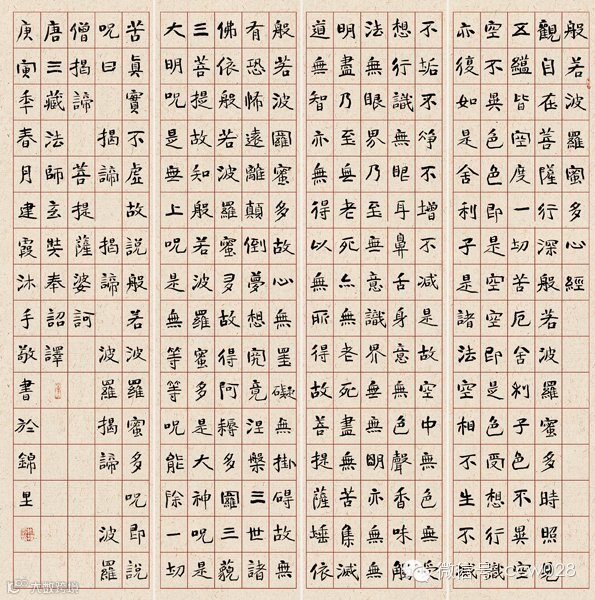 般若波羅蜜多心經
觀自在菩薩行深般若波羅蜜多時照見
五蘊皆空度一切苦厄舍利子色不異空
空不異色色即是空空即是色受想行識
亦復如是舍利子是諸法空相不生不滅
不垢不淨不增不減是故空中無色無受
想行識無眼耳鼻舌身意無色聲香味觸
法無眼界乃至無意識界無無明亦無無
明盡乃至無老死亦無老死盡無苦集滅
道無智亦無得以無所得故菩提薩埵依
般若波羅蜜多故心無罣礙無掛碍故無
有恐怖遠離顛倒夢想究竟涅槃三世諸
佛依般若波羅蜜多故得阿耨多羅三藐
三菩提故知般若波羅蜜多是大神咒是
大明咒是無上咒是無等等咒能除一切
苦真實不虛故說般若波羅蜜多咒即說
咒曰 揭諦揭諦 波羅揭諦 波羅
僧揭諦 菩提薩婆訶
唐三藏法師玄奘奉詔譯
庚寅年春月建霞沐手敬書於錦里
微信号
大数跨境